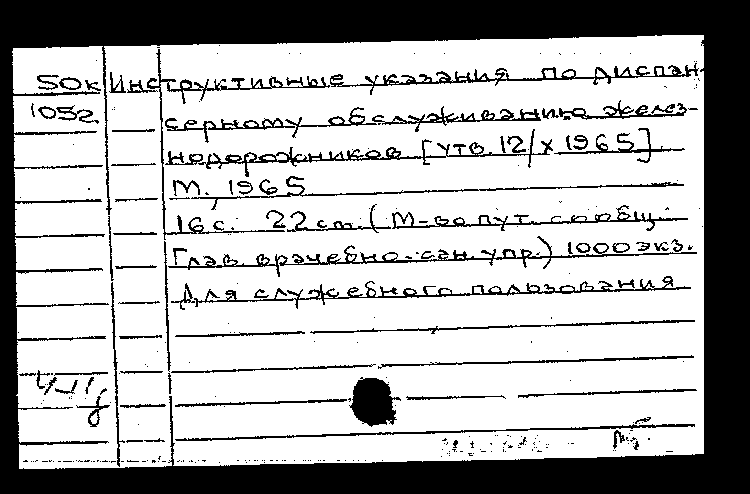 50к Инструктивные указания по диспан-
1052. серному обслуживанию желез-
нодорожников [утв. 12/X 1965].
М., 1965
16 с. 22 см. (М-во пут. сообщ.
Глав. врачебно-сан. упр.) 1000 экз.
Для служебного пользования